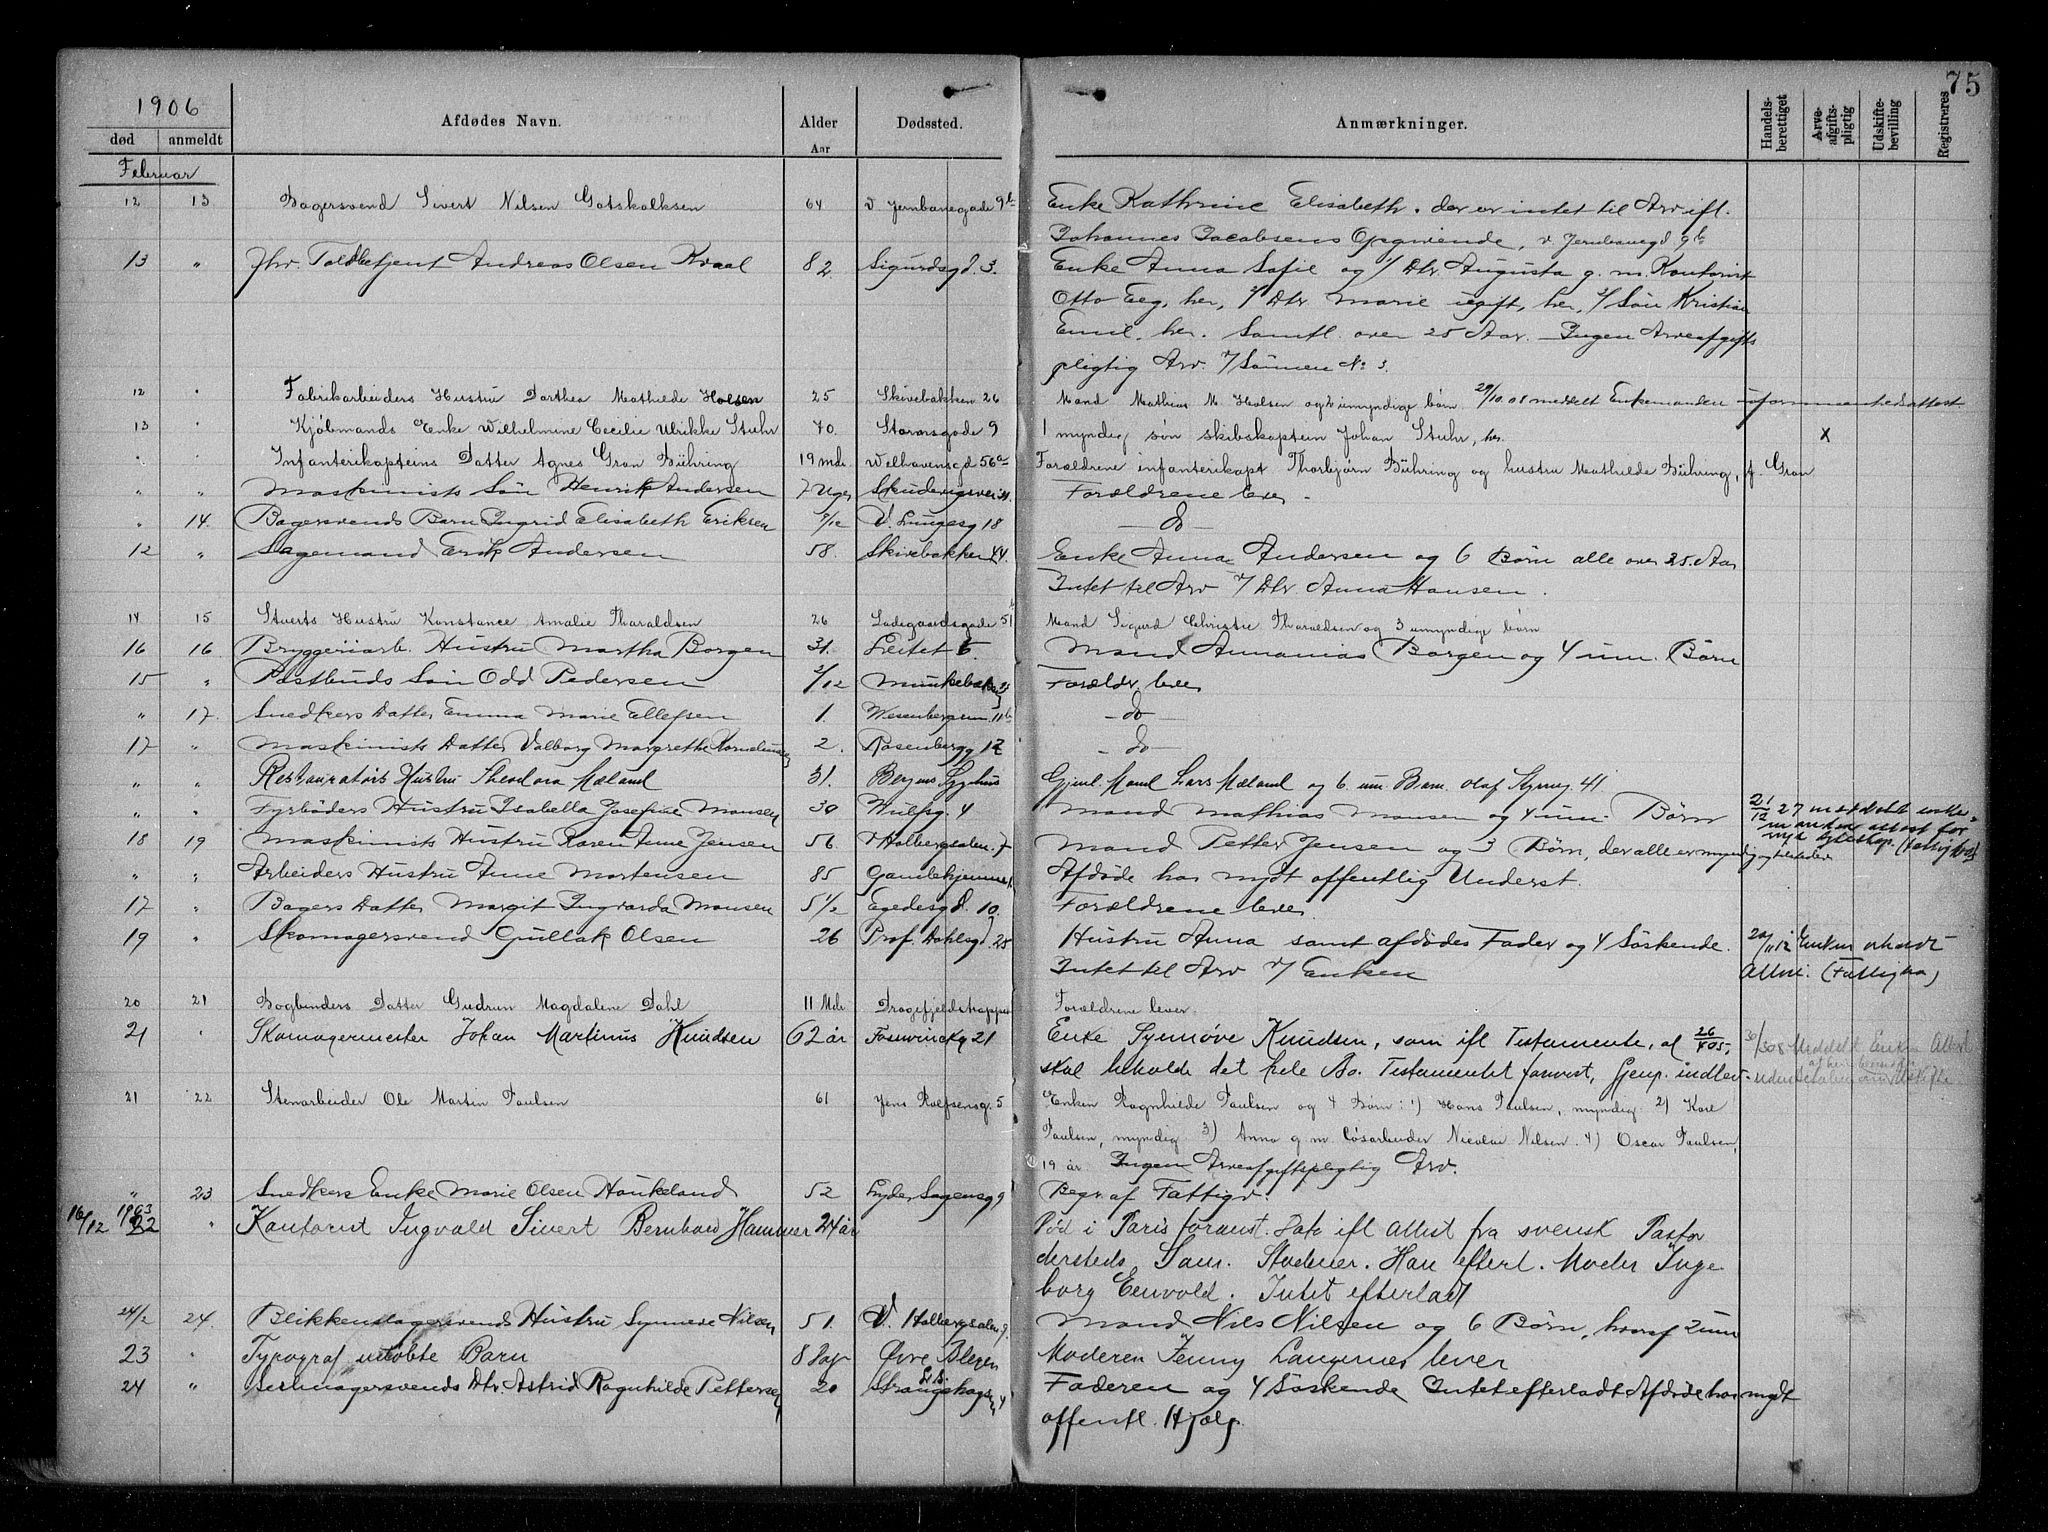 75
1906
død anmeldt Afdødes Navn. Alder Aar Dødssted. Anmærkninger. Handelsberettiget Arveafgiftspligtig Udskiftebevilling Registreres
Februar
12 13 Bagersvend Sivert Nilsen Gotskalksen 64 v Jernbanegade 9b Enke Kathrine Elisabeth. der er intet til Arv ifl.
Johannes Jacobsens Opgivende, v. Jernbanegd 9b
13 " Fhv. Toldbetjent Andreas Olsen Kvaal 82. Sigurdsgd. 3. Enke Anna Sofie og 1/ Dtr. Augusta g. m. Kontorist
Otto Eeg, her, 2/ Dtr Marie ugift, her, 3/ Søn Kristian
Emil, her. Samtl. over 25 Aar. Ingen Arveafgifts
pligtig Arv. v/ Sønnen No 3.
12 " Fabrikarbeiders Hustru Dorthea Mathilde Holsen 25 Skivebakken 26 Mand Mathias M Holsen og 2 umyndige børn 29/10.08 meddelt Enkemanden
13 " Kjøbmands Enke Wilhelmine Cecilie Ulrikke Stuhr 70. Stormsgade 9 1 myndig søn skibskaptein Johan Stuhr, her. X
" " Infanterikapteins Datter Agnes Gran Bühring 19 mdr Welhavensgd 56a Forældrene infanterikapt Thorbjørn Bühring og hustru Mathilde Bühring, f. Gran
" " Maskinists Søn Henrik Andersen 7 Uger Forældrene lever.
" 14. Bagersvends Barn Ingrid Elisabeth Eriksen 9/12 V. Lungegg 18 — do —
12 " Sagemand Erik Andersen 58. Skivebakken 44. Enke Anna Andersen og 6 Børn alle over 25. Aar
Intet til Arv v/ Dtr Anna Hansen.
14 15 Stuerts Hustru Konstance Amalie Tharaldsen 26 Ladegaardsgade 51 Mand Sigurd Christie Tharaldsen og 3 umyndige børn
16 16 Bryggeriarb. Hustru Martha Borgen 31. Leitet 5. Mand Annanias Borgen og 4 um. Børn
15 " Postbuds Søn Odd Pedersen 2/12 Forældr. lever
" 17. Snedkers Datter Emma Marie Ellefsen 1. Wesenbergsm. 11b — do —
17 " Maskinists Datter Valborg Margrethe Kornelius 2. Rosenbergg 12 — do —
" " Restauratørs Hustru Theodora Mæland 31. Bergens Sygehus Gjenl. Mand Lars Mæland og 6 um. Børn Olaf Kyrresg 41
" " Fyrbøders Hustru Isabella Josefine Monsen 30 Wulfsg. 4 Mand Mathias Monsen og 4 um. Børn 21/12 27 meddelt enkemanden attest for nyt Egteskap. (Fattigkas)
18 19 Maskinists Hustru Karen Anne Jensen 56. v Holbergsalm. 7 Mand Petter Jensen og 3 Børn, der alle er myndig
" " Arbeiders Hustru Anne Mortensen 85 Gamlehjemmet Afdøde har nydt offentlig Underst.
17 " Bagers Datter Margit Ingvarda Monsen 5 1/2 Egedesgd. 10. Forældrene lever.
19 " Skomagersvend Gullak Olsen 26 Prof. Dahlsgd. 25 Hustru Anna samt afdødes Fader og 4 Søskende. 20/11 12 Enken erholdt
Intet til Arv v/ Enken Attest. (Fattigkas)
20 21 Bogbinders Datter Gudrun Magdalene Dahl 11 Mdr Dragefjeldstrappen Forældrene lever
21 " Skomagermester Johan Martinus Knudsen 62 år Fosswincksg 21 Enke Synnøve Knudsen, som ifl Testamente, af 26/4 05, 30/3 08 Meddelt Enken Attest
skal beholde det hele Bo. Testamentet forevist, Gjenp. indlev-
21 22 Stenarbeider Ole Martin Paulsen 61 Jens Rolfsensg. 5 Enken Ragnhilde Paulsen og 4 Børn: 1) Hans Paulsen, myndig 2) Karl
Paulsen, myndig 3) Anna g m løsarbeider Nicolai Nilsen. 4) Oscar Paulsen,
19 år Ingen Arveafgiftspligtig Arv.
" 23 Snedkers Enke Marie Olsen Haukeland 52 Lyder Sagensg 9 Begr. af Fattigv.
16/12 1903 22 " Kontorist Ingvald Sivert Bernhard Hammer 24 år Død i Paris foranst. Dato ifl Attest fra svensk Pastor
dersteds Sam. Stadener. Han efterl. Moder Inge
borg Eenvold. Intet efterladt
24/2 24. Blikkenslagersvends Hustru Synneve Nilsen 51. V. Holbergsalm 9. Mand Nils Nilsen og 6 Børn, hvoraf 2 um
23 " Typograf udøbte Barn 8 Dage Øvre Blegen Moderen Jenny Langenes lever
24 " Seilmagersvends Dtr. Astrid Ragnhilde Pettersen 20 Lil. Strangehagen 4 Faderen og 4 Søskende Intet efterladt Afdøde har nydt
offentl. Hjælp.